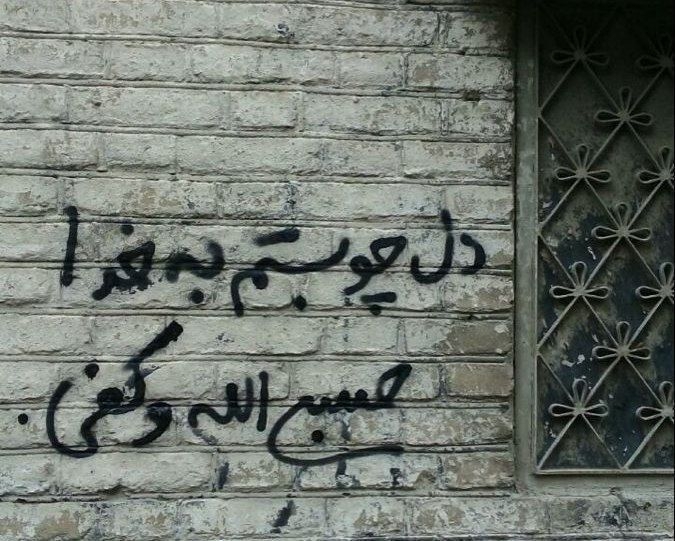 دل چو بستم به خدا
حسبی الله و کفی.